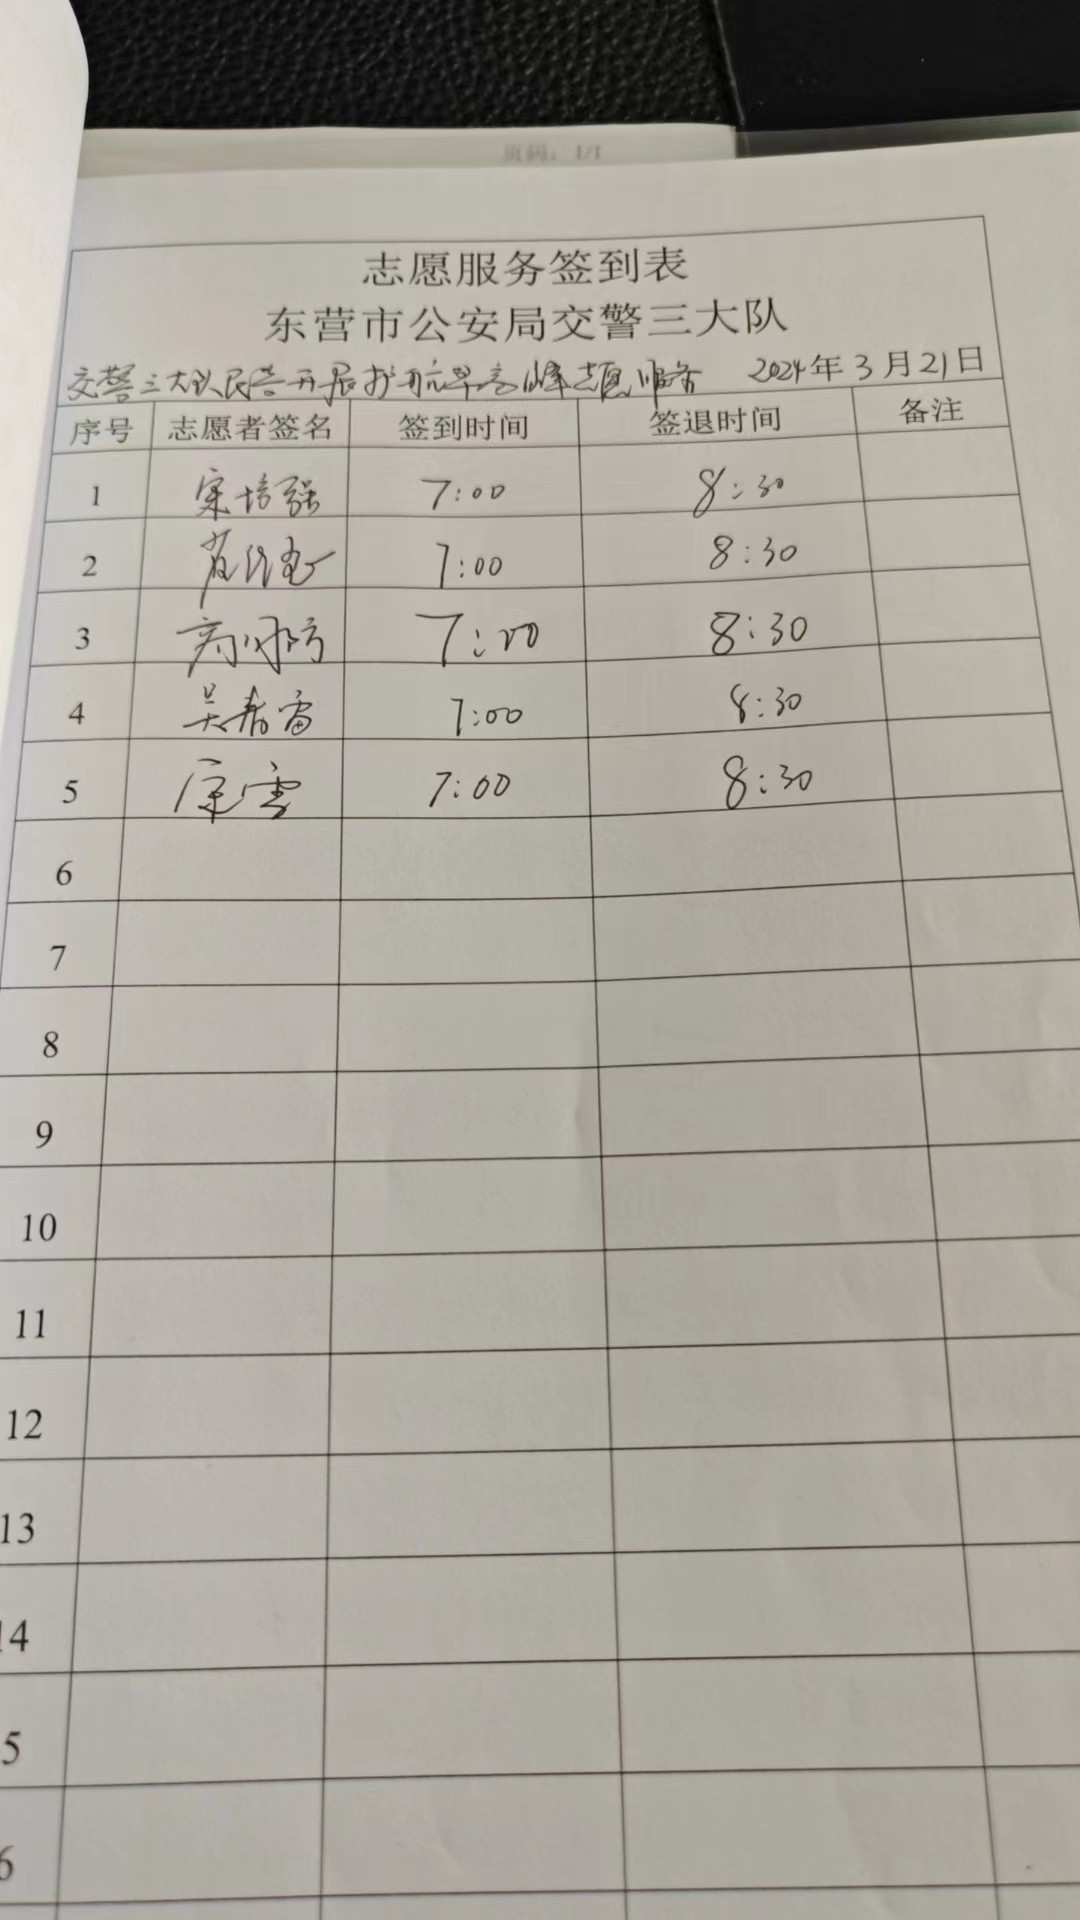 页码：1/1
志愿服务签到表
东营市公安局交警三大队
交警三大队民警开展护航早高峰志愿服务 2024年3月21日
序号 志愿者签名 签到时间 签退时间 备注
1 宋培强 7:00 8:30
2 7:00 8:30
3 7:00 8:30
4 吴春雷 7:00 8:30
5 7:00 8:30
6
7
8
9
10
11
12
13
14
5
6